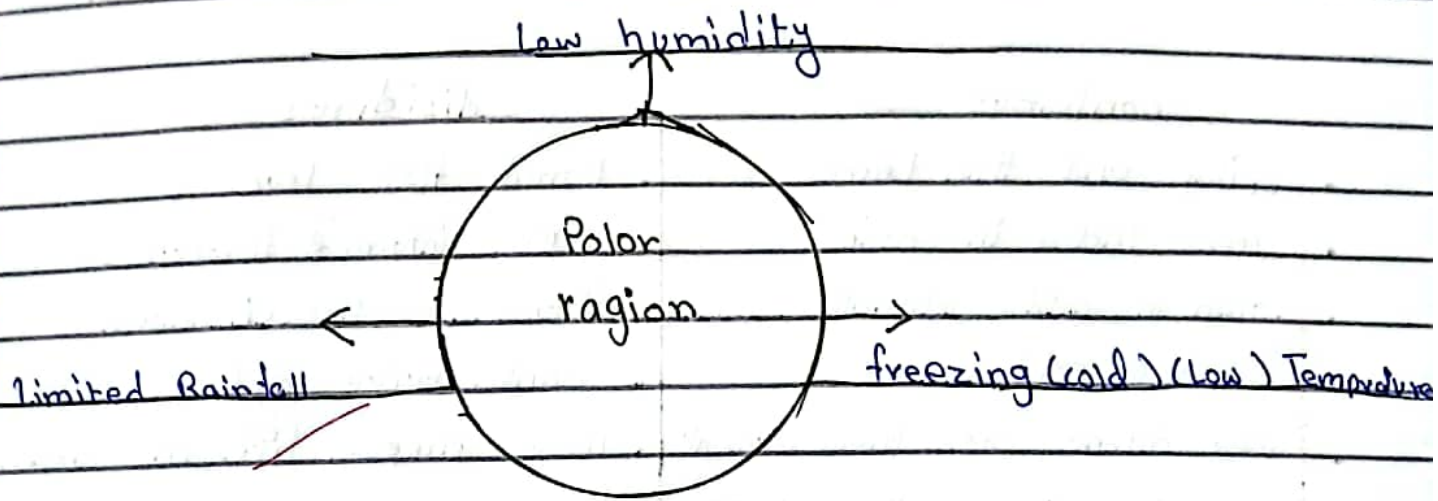 Low humidity
Polor
ragion
Limited Rainfall
freezing (cold) (Low) Temprdure